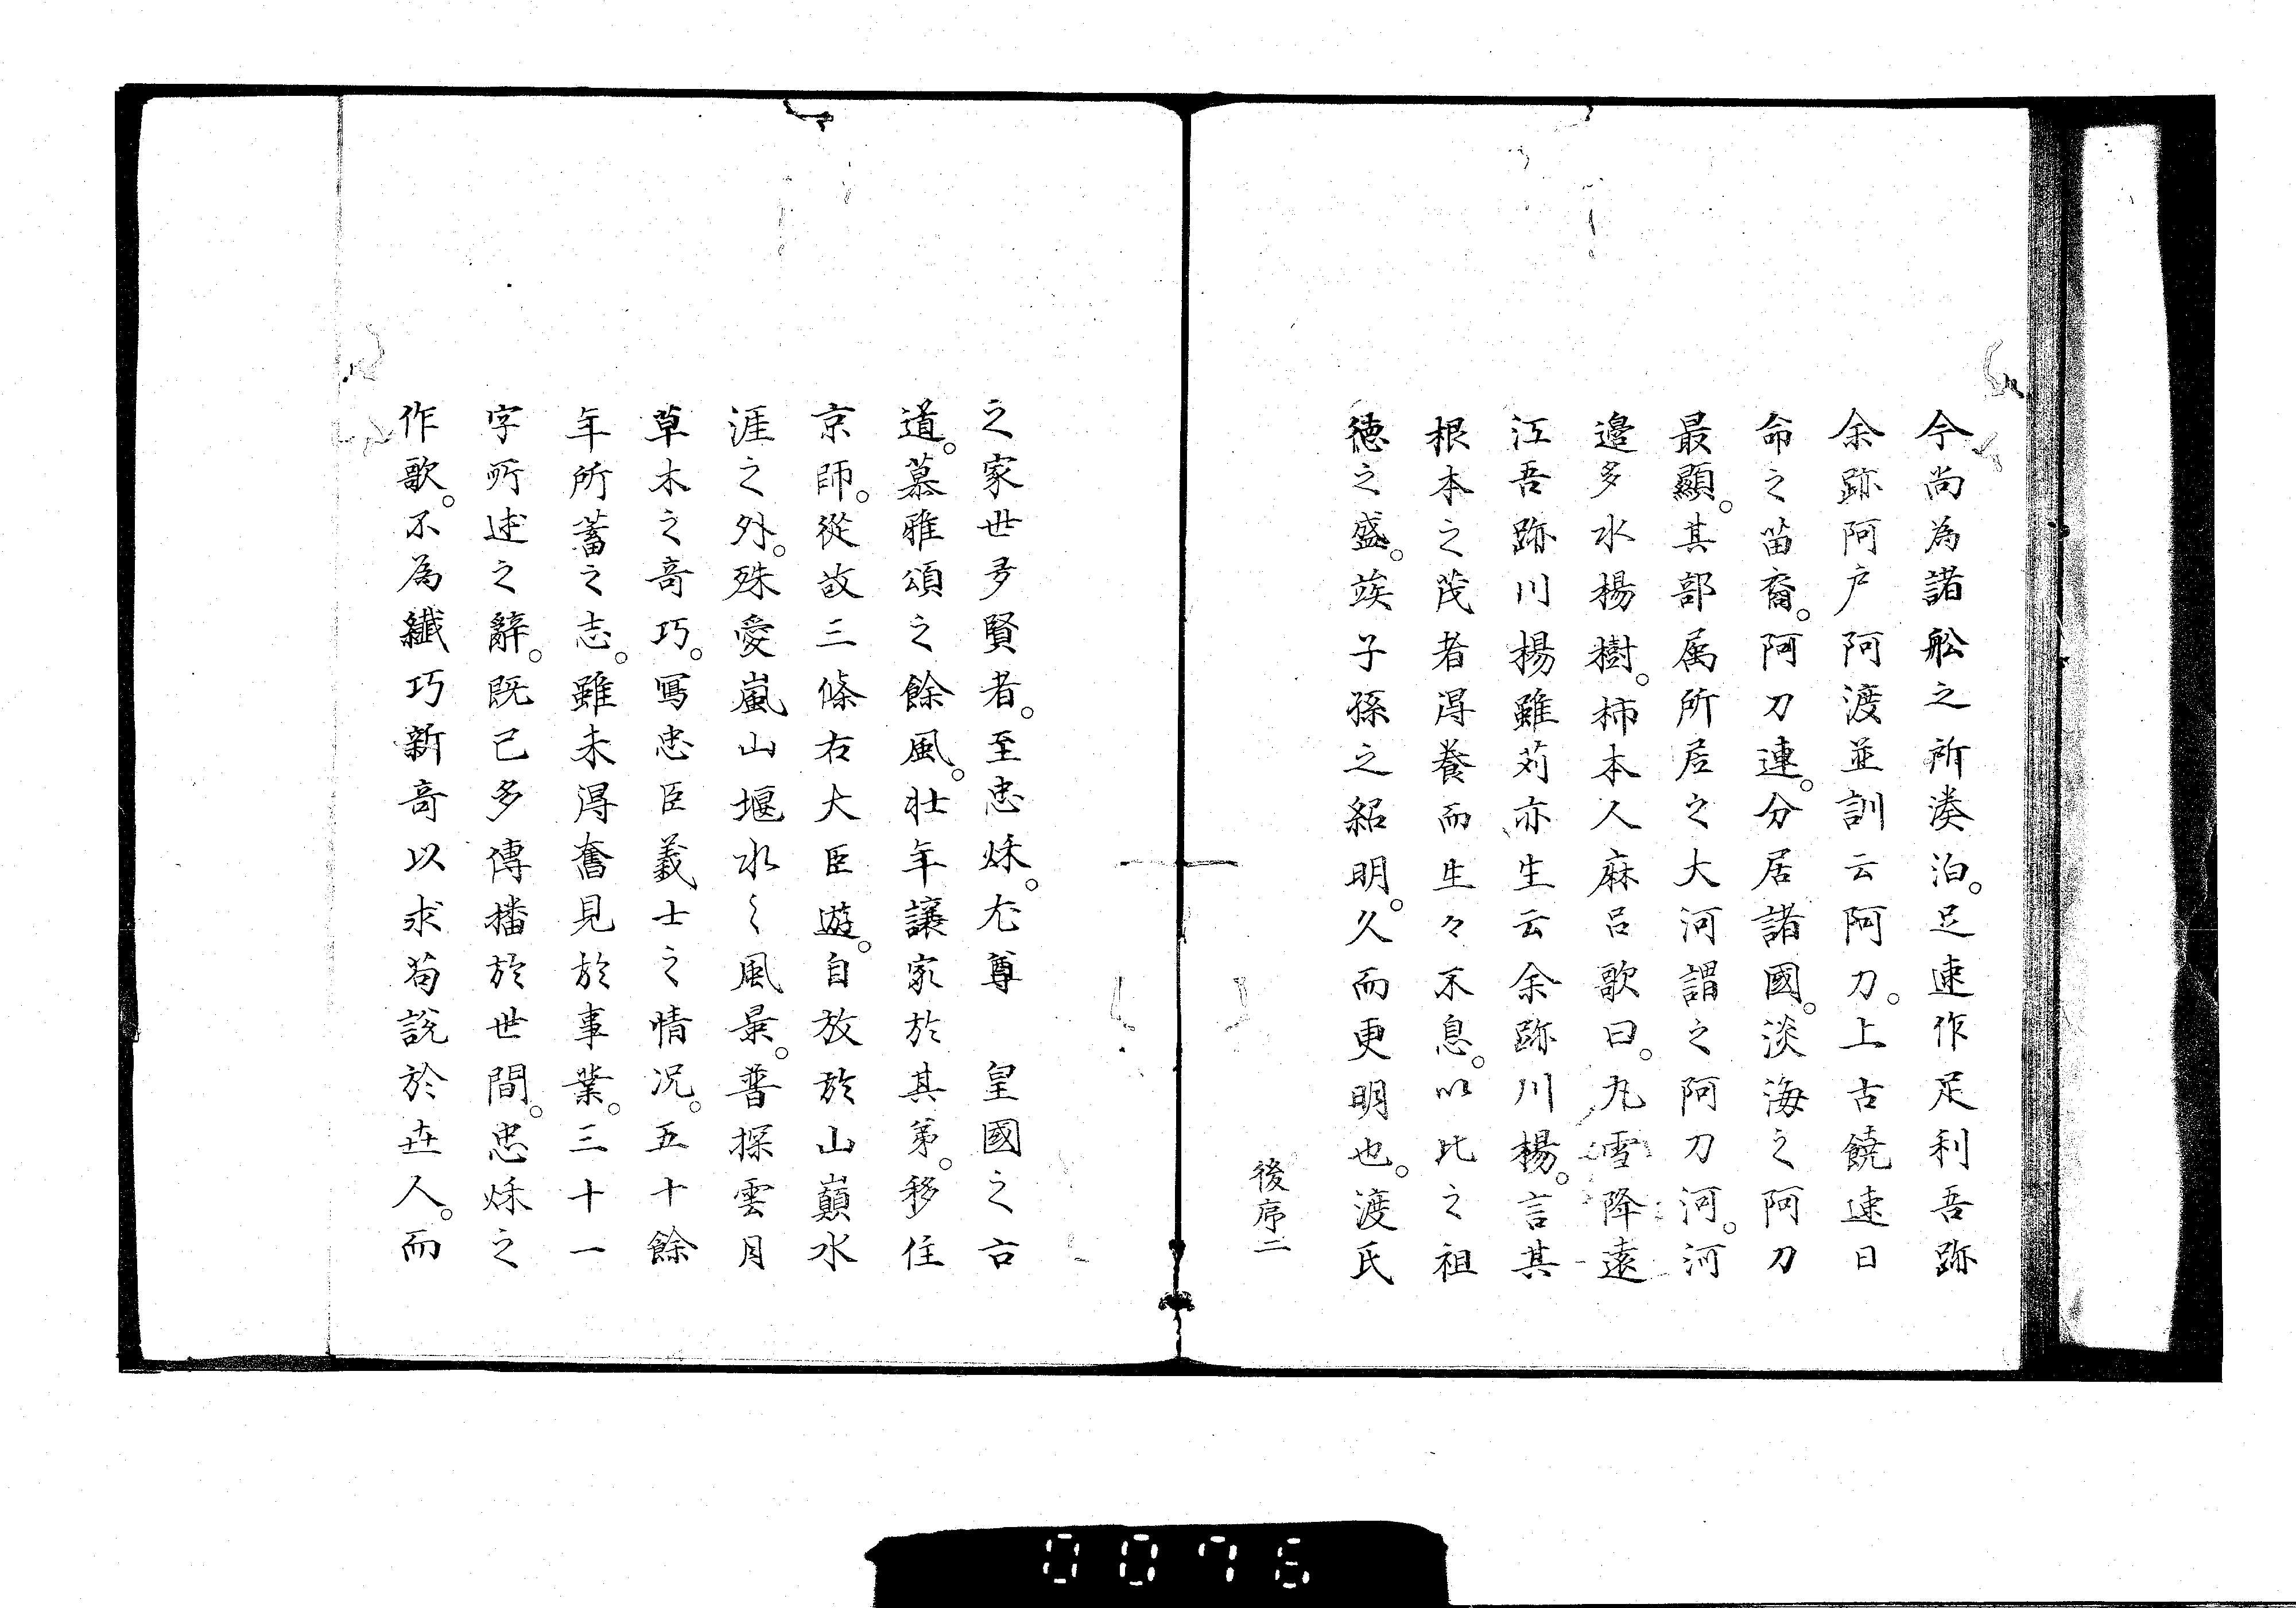 今尚為諸舩之所湊泊。足速作足利吾跡
余跡阿戸阿渡並訓云阿刀。上古饒速日
命之苗裔。阿刀連。分居諸國。淡海之阿刀
最顯。其部属所居之大河謂之阿刀河。河
邉多水楊樹。柿本人麻呂歌曰。丸雪降遠
江吾跡川楊雖苅亦生云余跡川楊。言其
根本之茂者得養而生々不息。以比之祖
徳之盛。竢子孫之紹明。久而更明也。渡氏
後序二
之家世多賢者。至忠秌。尤尊　皇國之古
道。慕雅頌之餘風。壮年讓家於其弟。移住
京師。從故三條右大臣遊。自放於山巓水
涯之外。殊愛嵐山堰水之風景。普探雲月
草木之竒巧。寫忠臣義士之情况。五十餘
年所蓄之志。雖未得奮見於事業。三十一
字所述之辭。既已多傳播於世間。忠秌之
作歌。不為纖巧新竒以求苟説於世人。而
0076